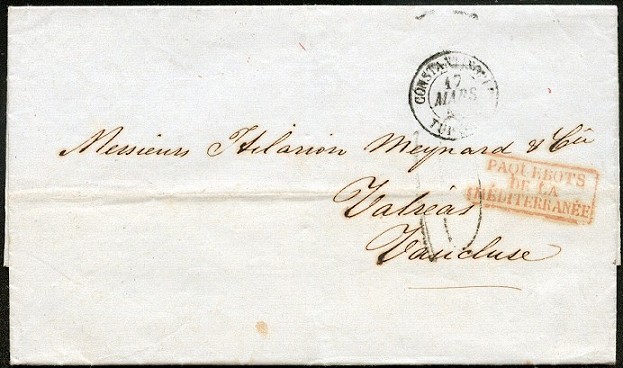 CONSTANTINOPLE
17
MARS
TURQ
Messieurs Hilarion Meynard & Cie
PAQUEBOTS
DE LA
MÉDITERRANÉE
Valréas
Vaucluse